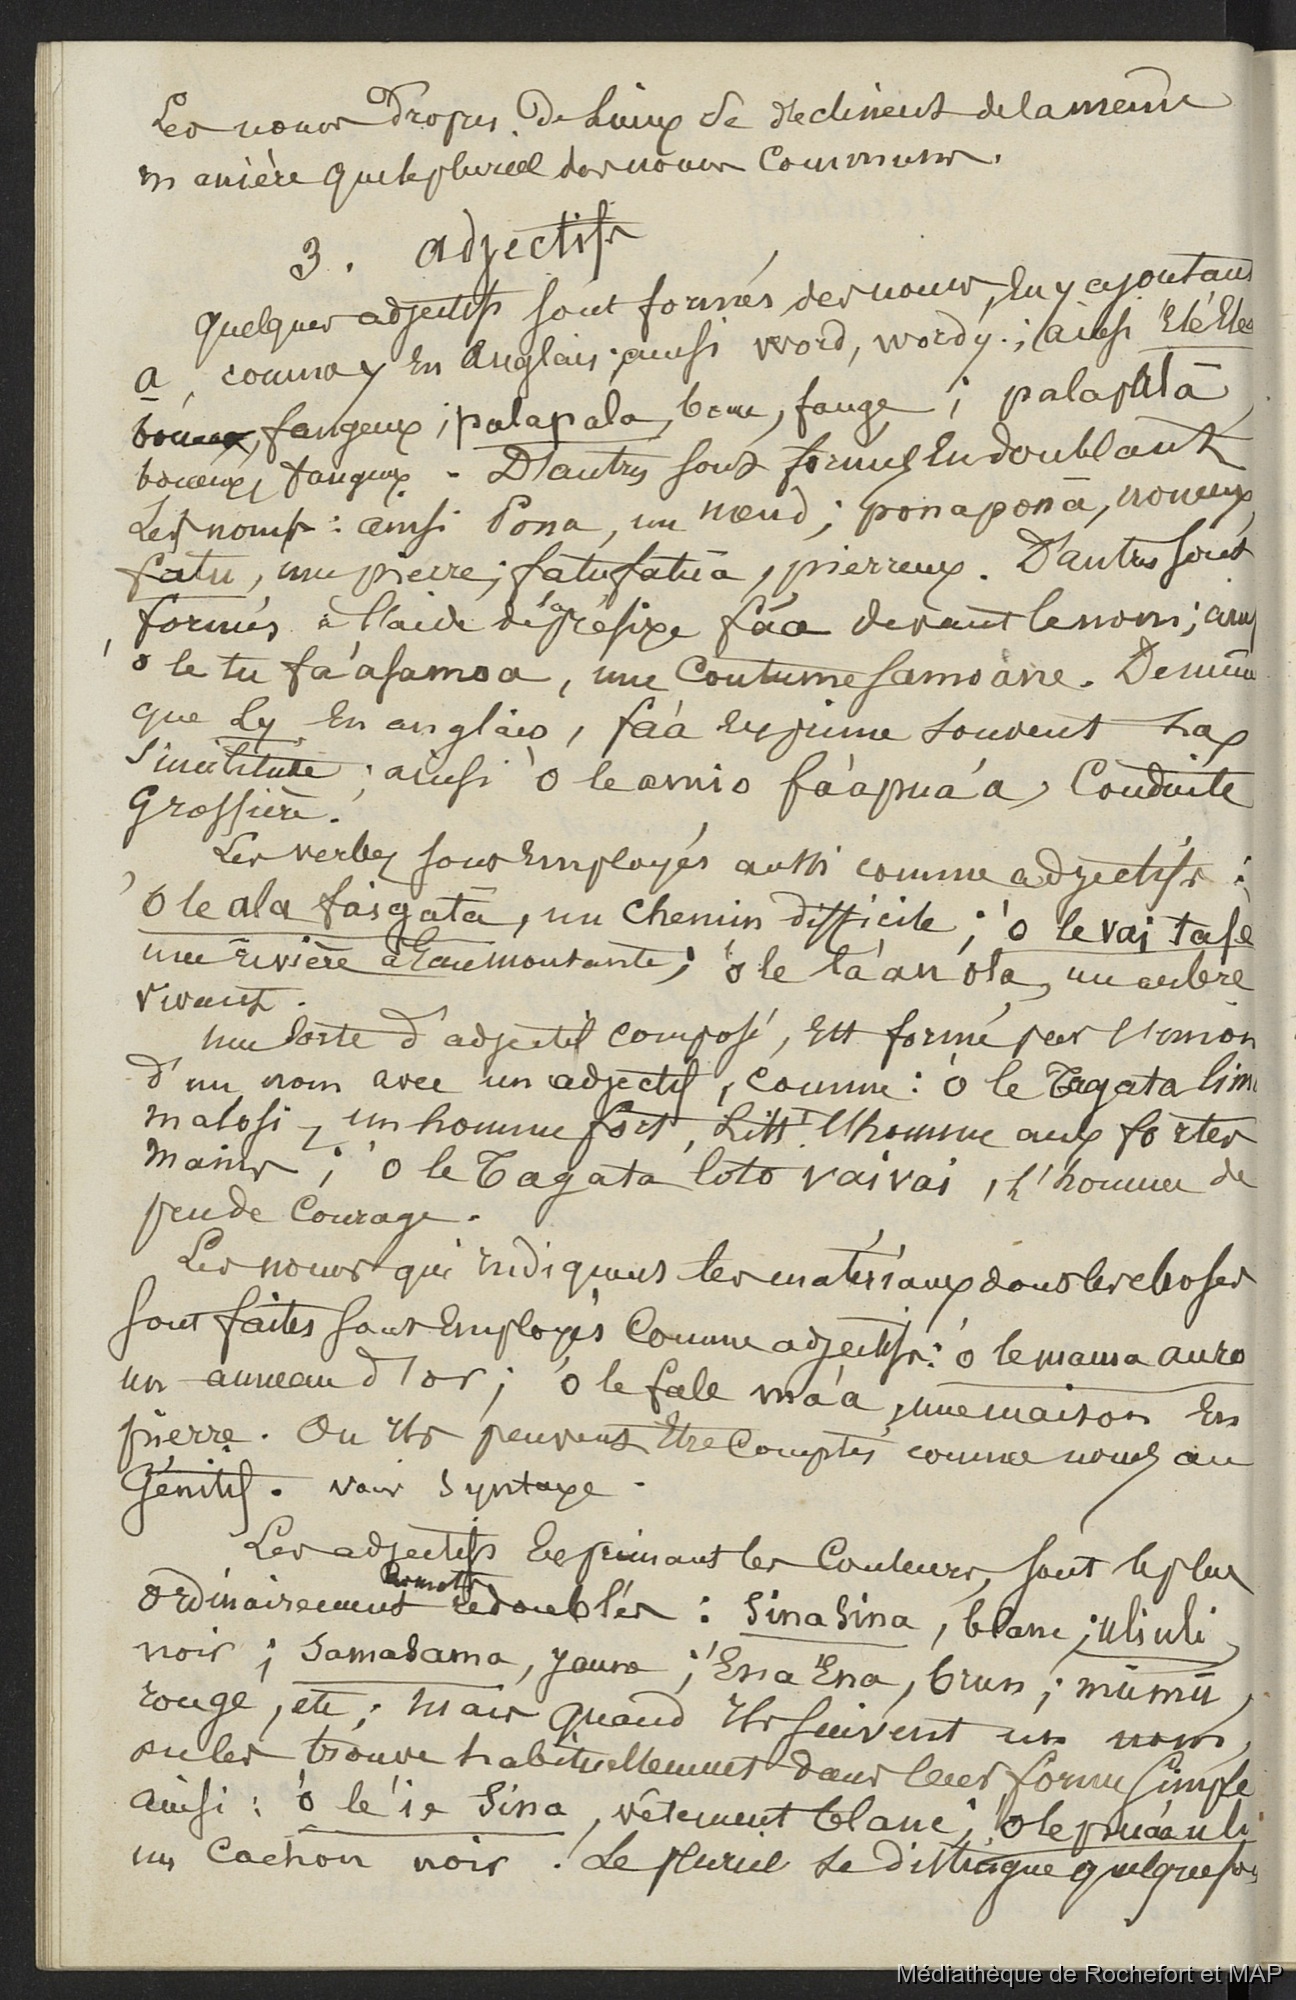 Les noms propres de Lieux se déclinent de la même
manière que le pluriel des noms communs.
3. adjectifs
Quelques adjectifs sont formés des noms, en y ajoutant
a, comme y en Anglais; ainsi word, wordy; ainsi 'Ele'Ele
boueux, fangeux; palapala, boue, fange; palapalā
boueux, fangeux. D'autres sont formés en doublant
Les noms: ainsi Pona, un nœud; ponaponā, noueux,
fatu, une pierre; fatufatuā, pierreux. D'autres sont
formés à l'aide du préfixe fáa devant le nom; ainsi
'o le tu fa'asamoa, une Coutume samoane. De même
que Ly en anglais, fáa exprime souvent
similitude; ainsi 'o le amio fa'apua'a, Conduite
Grossière.
Les verbes sont employés aussi comme adjectifs:
'O le ala faigatā, un chemin difficile; 'o le vai tafe
une rivière à Eau montante; 'o le lā'au ola, un arbre
vivant.
Une sorte d'adjectif composé, est formé par l'union
d'un nom avec un adjectif, comme: 'o le Tagata lima
malosi, un homme fort, Littt. l'homme aux fortes
mains; 'o le Tagata loto vaivai, l'homme de
peu de Courage.
Les noms qui indiquent les matériaux dont les choses
sont faites sont employés Comme adjectifs: 'o le mama auro
un anneau d'or; 'o le fale ma'a, une maison en
pierre. Ou ils peuvent être Comptés comme noms au
Génitif. voir Syntaxe.
Les adjectifs Exprimant les Couleurs, sont le plus
les mots
ordinairement redoublés: Sinasina, blanc; uliuli
noir; samasama, jaune; 'Ena'Ena, brun; mūmū
rouge, etc; Mais quand ils suivent un nom,
on les trouve habituellement dans leur forme simple
ainsi: 'o le 'ie Sina, vêtement blanc; 'o le pua'a uli
un Cochon noir. Le pluriel se distingue quelquefois
Médiathèque de Rochefort et MAP